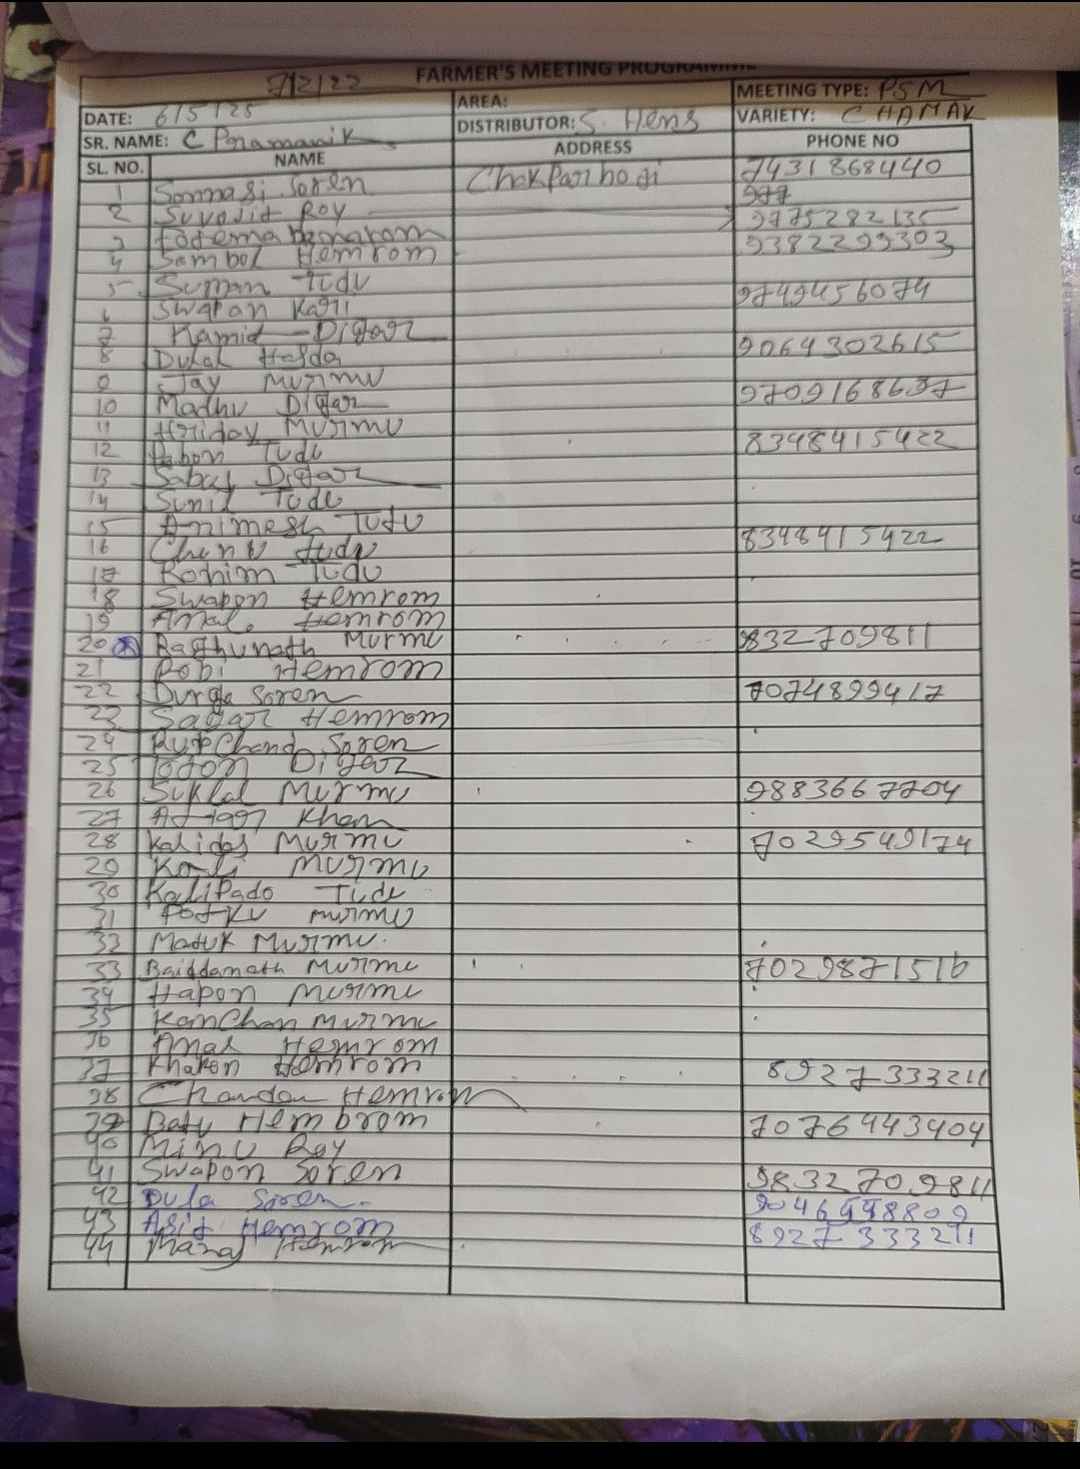 7/2/22 FARMER'S MEETING PROGRAMME
DATE: 6/5/25 AREA: MEETING TYPE: PSM
SR. NAME: C Pramanik DISTRIBUTOR: S. Hens VARIETY: CHAMAK
SL. NO. NAME ADDRESS PHONE NO
1 Sonmasi Soren Chakparhogi 7431868440
2 Suvojit Roy 977 9775282135
3 9382299303
4 Sambol Hemrom
5 Suman Tudu 9749456074
6 Swapan
7 Kamid Digar
8 Dulal Halda 9064302615
9 Jay Murmu
10 Madhu Digar 9709168697
11 Hriday Murmu
12 Pabon Tudu 8348415422
13 Sabuj Digar
14 Sunil Tudu
15 Animesh Tudu
16 Chunu Tudu 8348415422
17 Rohim Tudu
18 Swapon Hemrom
19 Amal. Hemrom
20 Raghunath Murmu 832709811
21 Robi Hemrom
22 Durga Soren 7074899417
23 Sagar Hemrom
24 Rupchand Soren
25 Toton Digar
26 Suklal Murmu 9883667704
27 Khan
28 Kalidas Murmu 7029549174
29 Kali Murmu
30 Kalipado Tudu
31 Potku murmu
32 Matuk Murmu.
33 Baiddanath Murmu 7029871516
34 Hapon Murmu
35 Kanchan murmu
36 Amal Hemrom
37 Khakon Hemrom 8927333211
38 Chandan Hemrom
39 Batu Hembrom 7076443404
40 Minu Roy
41 Swapon Soren 9832709811
42 Dula Soren. 9046498809
43 Asit Hemrom 8927333211
44 Manaj Hemrom